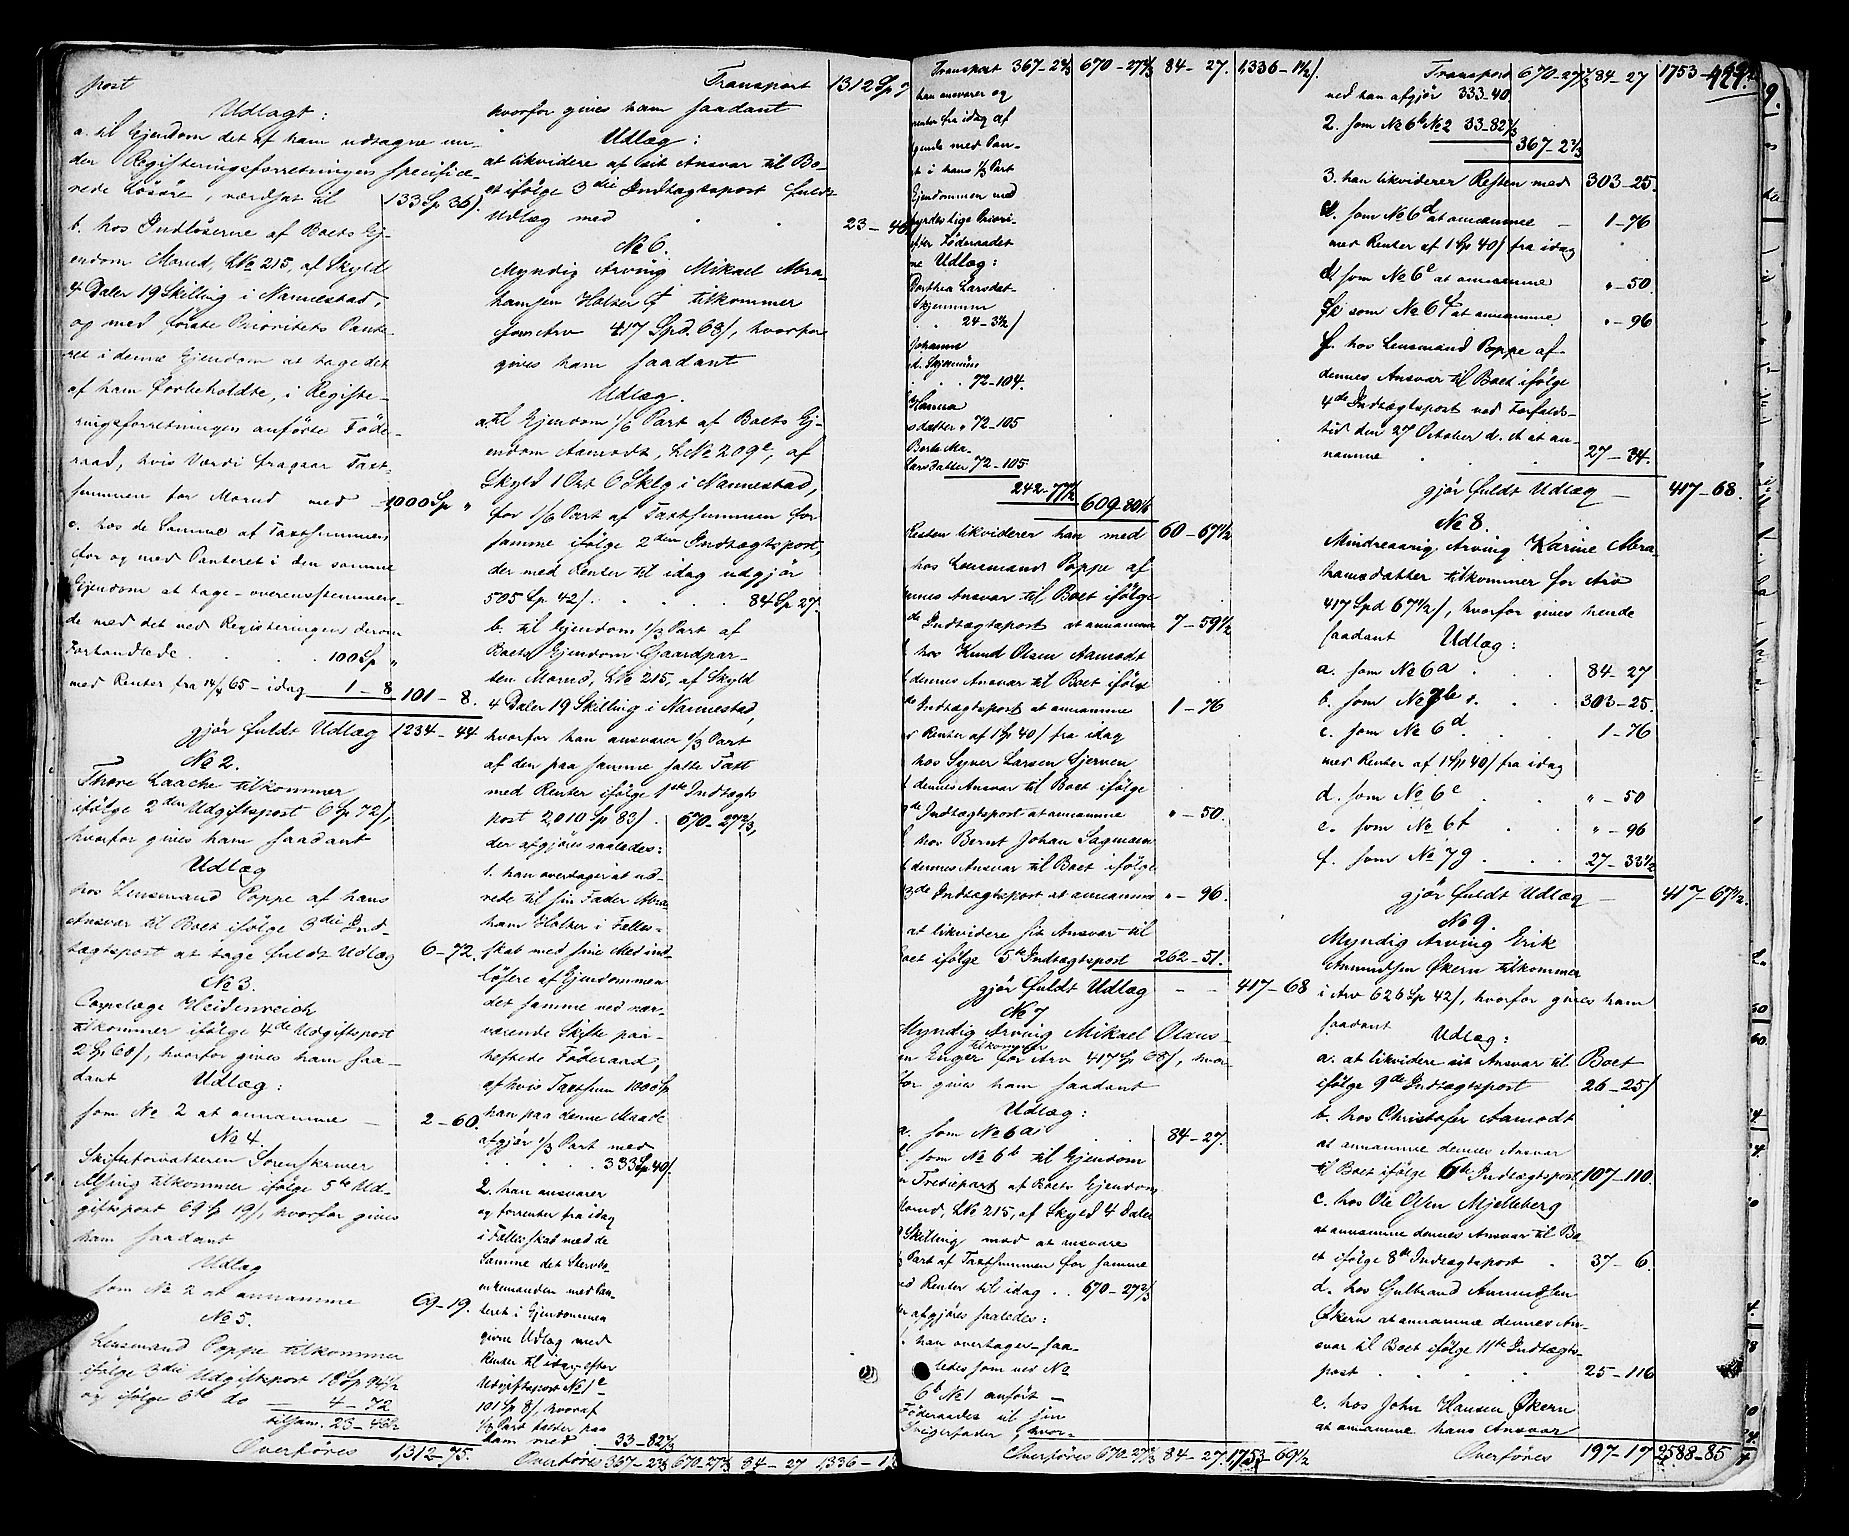 post
Udlagt:
a. til Ejendom det af ham udtagne un-
der Registeringsforretningen specifice-
rede Løsøre, værdsat til 133 Sp 36 s.
b. hos Indløserne af Boets Ej-
endom Morud, LNo 215, af Skyld
4 Daler 19 Skilling i Nannestad,
og med første Prioritets Pante-
ret i denne Ejendom at tage det
af ham forbeholdte, i Registe-
ringsforretningen anførte Føde-
raad, hvis Værdi fragaar Taxt-
summen for Morud med 1000 Sp "
c. hos de Samme af Taxtsummen
for og med Panteret i den samme
Ejendom at tage - overensstemmen-
de med det ved Registeringen derom
Forhandlede . . . 100 Sp "
med Renter fra 14/4 65 - idag 1 - 8 101 - 8.
gjør fuldt Udlæg 1234 - 44
No 2.
Thore Laache tilkommer
ifølge 2den Udgiftspost 6 Sp 72 s,
hvorfor gives ham saadant
Udlæg
hos Lensmand Poppe af hans
Ansvar til Boet ifølge 3die Ind-
tægtspost at tage fuldt Udlæg 6 - 72.
No 3.
Corpslæge Heidenreich
tilkommer ifølge 4de Udgiftspost
2 Sp 60 s, hvorfor gives ham saa-
dant Udlæg:
som No 2 at annamme 2 - 60.
No 4.
Skifteforvalteren Sorenskriver
tilkommer ifølge 5te Ud-
giftspost 69 Sp 19 s, hvorfor gives
ham saadant
Udlæg
som No 2 at annamme 69 - 19.
No 5.
Lensmand Poppe tilkommer
ifølge 3die Udgiftspost 18 Sp 94 1/2
og ifølge 6te do 4 - 72
tilsam. 23 - 46 1/2
Overføres 1312 - 75.
Transport 1312 Sp 7
hvorfor gives ham saadant
Udlæg:
at likvidere af sit Ansvar til Bo-
et ifølge 3die Indtægtspost fuldt
Udlæg med . . 23 - 46
No 6.
Myndig Arving Mikael Abra-
hamsen Holter tilkommer
som Arv 417 Spd. 68 s, hvorfor
gives ham saadant
Udlæg.
a. til Ejendom 1/6 Part af Boets Ej-
endom Aamodt, LNo 209c, af
Skyld 1 Ort 6 Sklg i Nannestad,
for 1/6 Part af Taxtsummen for
samme ifølge 2den Indtægtspost,
der med Renter til idag udgjør
505 Sp 42 s. . . . 84 Sp 27.
b. til Ejendom 1/3 Part af
Boets Ejendom Gaardpar-
ten Morud, LNo 215, af Skyld
4 Daler 19 Skilling i Nannestad,
hvorfor han ansvarer 1/3 Part
af den paa samme satte Taxt
med Renter ifølge 1ste Indtægts
post 2,010 Sp 83 s. 670 - 27 2/3,
der afgjøres saaledes:
1. han overtager at ud-
rede til sin Fader Abra-
ham Holter i Felles-
skab med sine Med ind-
løsere af Ejendommen
det samme ved nær-
værende Skifte paa-
heftede Føderaad,
af hvis Taxtsum 1000 Sp
han paa denne Maade
afgjør 1/3 Part med
. . . . 333 Sp 40 s.
2. han ansvarer
og forrenter fra idag
i Fellesskab med de
Samme det Stervbo-
enkemanden med Pan-
teret i Ejendommen
givne Udlæg med
Renter til idag efter
Udgiftspost No 1c
101 Sp 8 s, hvoraf
1/3 Part falder paa
ham med 33 - 82 2/3
Overføres 367 - 2 2/3 670 - 27 2/3 84 - 27 1,336 - 1
Transport 367 - 2 2/3 670 - 27 2/3 84 - 27. 1,336 - 1 1/2 s.
han ansvarer og
renter fra idag af
gende med Pan-
t i hans 1/3 Part
Ejendommen med
byrdes lige Priori-
efter Føderaadet
ne Udlæg:
Dorthea Larsdat-
Skjennum
. . 24 - 3 1/2 s
Johanne
d. Skjennum
. . . 72 - 104.
Hanna
sdatter " 72 - 105
Berte Ma-
Larsdatter 72 - 105.
242 - 77 1/2 609 - 80 1/6
Resten likviderer han med 60 - 67 1/2
hos Lensmand Poppe af
ennes Ansvar til Boet ifølge
de Indtægtspost at annamme 7 - 59 1/2
hos Knud Olsen Aamodt
dennes Ansvar til Boet ifølge
de Indtægtspost at annamme 1 - 76
Renter af 1 Sp 40 s fra idag
hos Syver Larsen Tjerven
dennes Ansvar til Boet ifølge
de Indtægtspost at annamme " - 50.
hos Bernt Johan Sagmoen
dennes Ansvar til Boet ifølge
3de Indtægtspost, at annamme " - 96.
at likvidere sit Ansvar til
Boet ifølge 5te Indtægtspost 262 - 51.
gjør fuldt Udlæg - - 417 - 68
No 7
Myndig Arving Mikael Olaus-
en Enger tilkommer for Arv 417 Sp 68 s, hvor-
for gives ham saadant
Udlæg:
a. som No 6 a . 84 - 27.
som No 6 b til Ejendom
Trediepart af Boets Ejendom
Morud, LNo 215, af Skyld 4 Daler
Skilling mod at ansvare
Part af Taxtsummen for samme
Renter til idag . . 670 - 27 2/3
afgjøres saaledes:
1. han overtager saa-
ledes som ved No
6b No 1 anført -
Føderaades til sin
Svigerfader hvor-
Overføres 670 - 27 2/3 84 - 27. 1753 - 69 1/2
Transport 670 - 27 2/3 84 - 27 1753 - 69 1/2
499.
ved han afgjør 333 - 40
2. som No 6 b No 2 33 - 82 2/3
367 - 2 2/3
3. han likviderer Resten med 303 - 25.
c. som No 6 d at annamme - 1 - 76
med Renter af 1 Sp 40 s fra idag
d. som No 6 e at annamme " - 50
e. som No 6 f at annamme " - 96
f. hos Lensmand Poppe af
dennes Ansvar til Boet ifølge
4de Indtægtspost ved Forfalds-
tid den 27 October d. A. at an-
namme . . 27 - 34.
gjør fuldt Udlæg - 417 - 68.
No 8.
Mindreaarig Arving Karine Abra-
hamsdatter tilkommer for Arv
417 Spd 67 1/2 s, hvorfor gives hende
saadant Udlæg:
a. som No 6 a . . 84 - 27
b. som No 7 b . . 303 - 25.
c. som No 6 d . . 1 - 76
med Renter af 1 Sp 40 s fra idag
d. som No 6 e . . " - 50
e. som No 6 f . . " - 96
f. som No 7 g . . 27 - 33 1/2
gjør fuldt Udlæg - 417 - 67 1/2.
No 9.
Myndig Arving Erik
Amundsen Økern tilkommer
i Arv 626 Sp 42 s, hvorfor gives ham
saadant Udlæg:
a. at likvidere sit Ansvar til Boet
ifølge 9de Indtægtspost 26 - 25 s
b. hos Christofer Aamodt
at annamme dennes Ansvar
til Boet ifølge 6te Indtægtspost 107 - 110.
c. hos Ole Olsen Mjelleberg
at annamme dennes Ansvar til Bo-
et ifølge 8de Indtægtspost . 37 - 6.
d. hos Gulbrand Amundsen
Økern at annamme dennes An-
svar til Boet ifølge 11te Indtægts-
post . . . . 25 - 116
e. hos John Hansen Økern
at annamme hans Ansvar
Overføres 197 - 17 2588 - 85